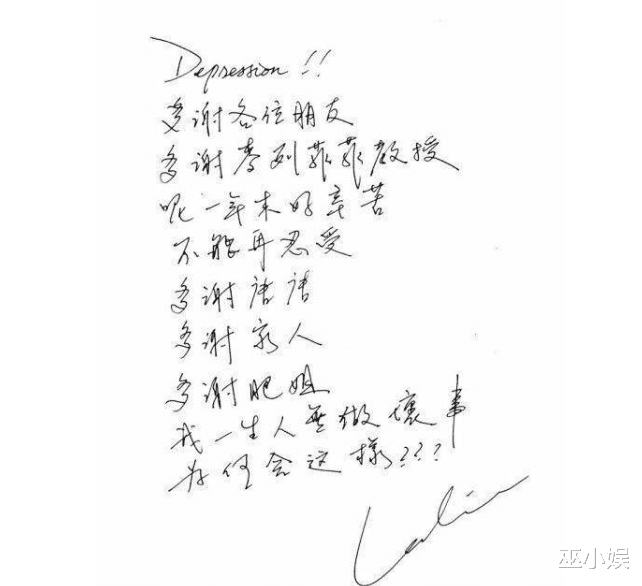 Depression!!
多謝各位朋友
多謝麥列菲菲教授
呢一年来好辛苦
不能再忍受
多謝唐唐
多謝家人
多謝肥姐
我一生人無做壞事
为何会这樣???
Leslie
巫小娱